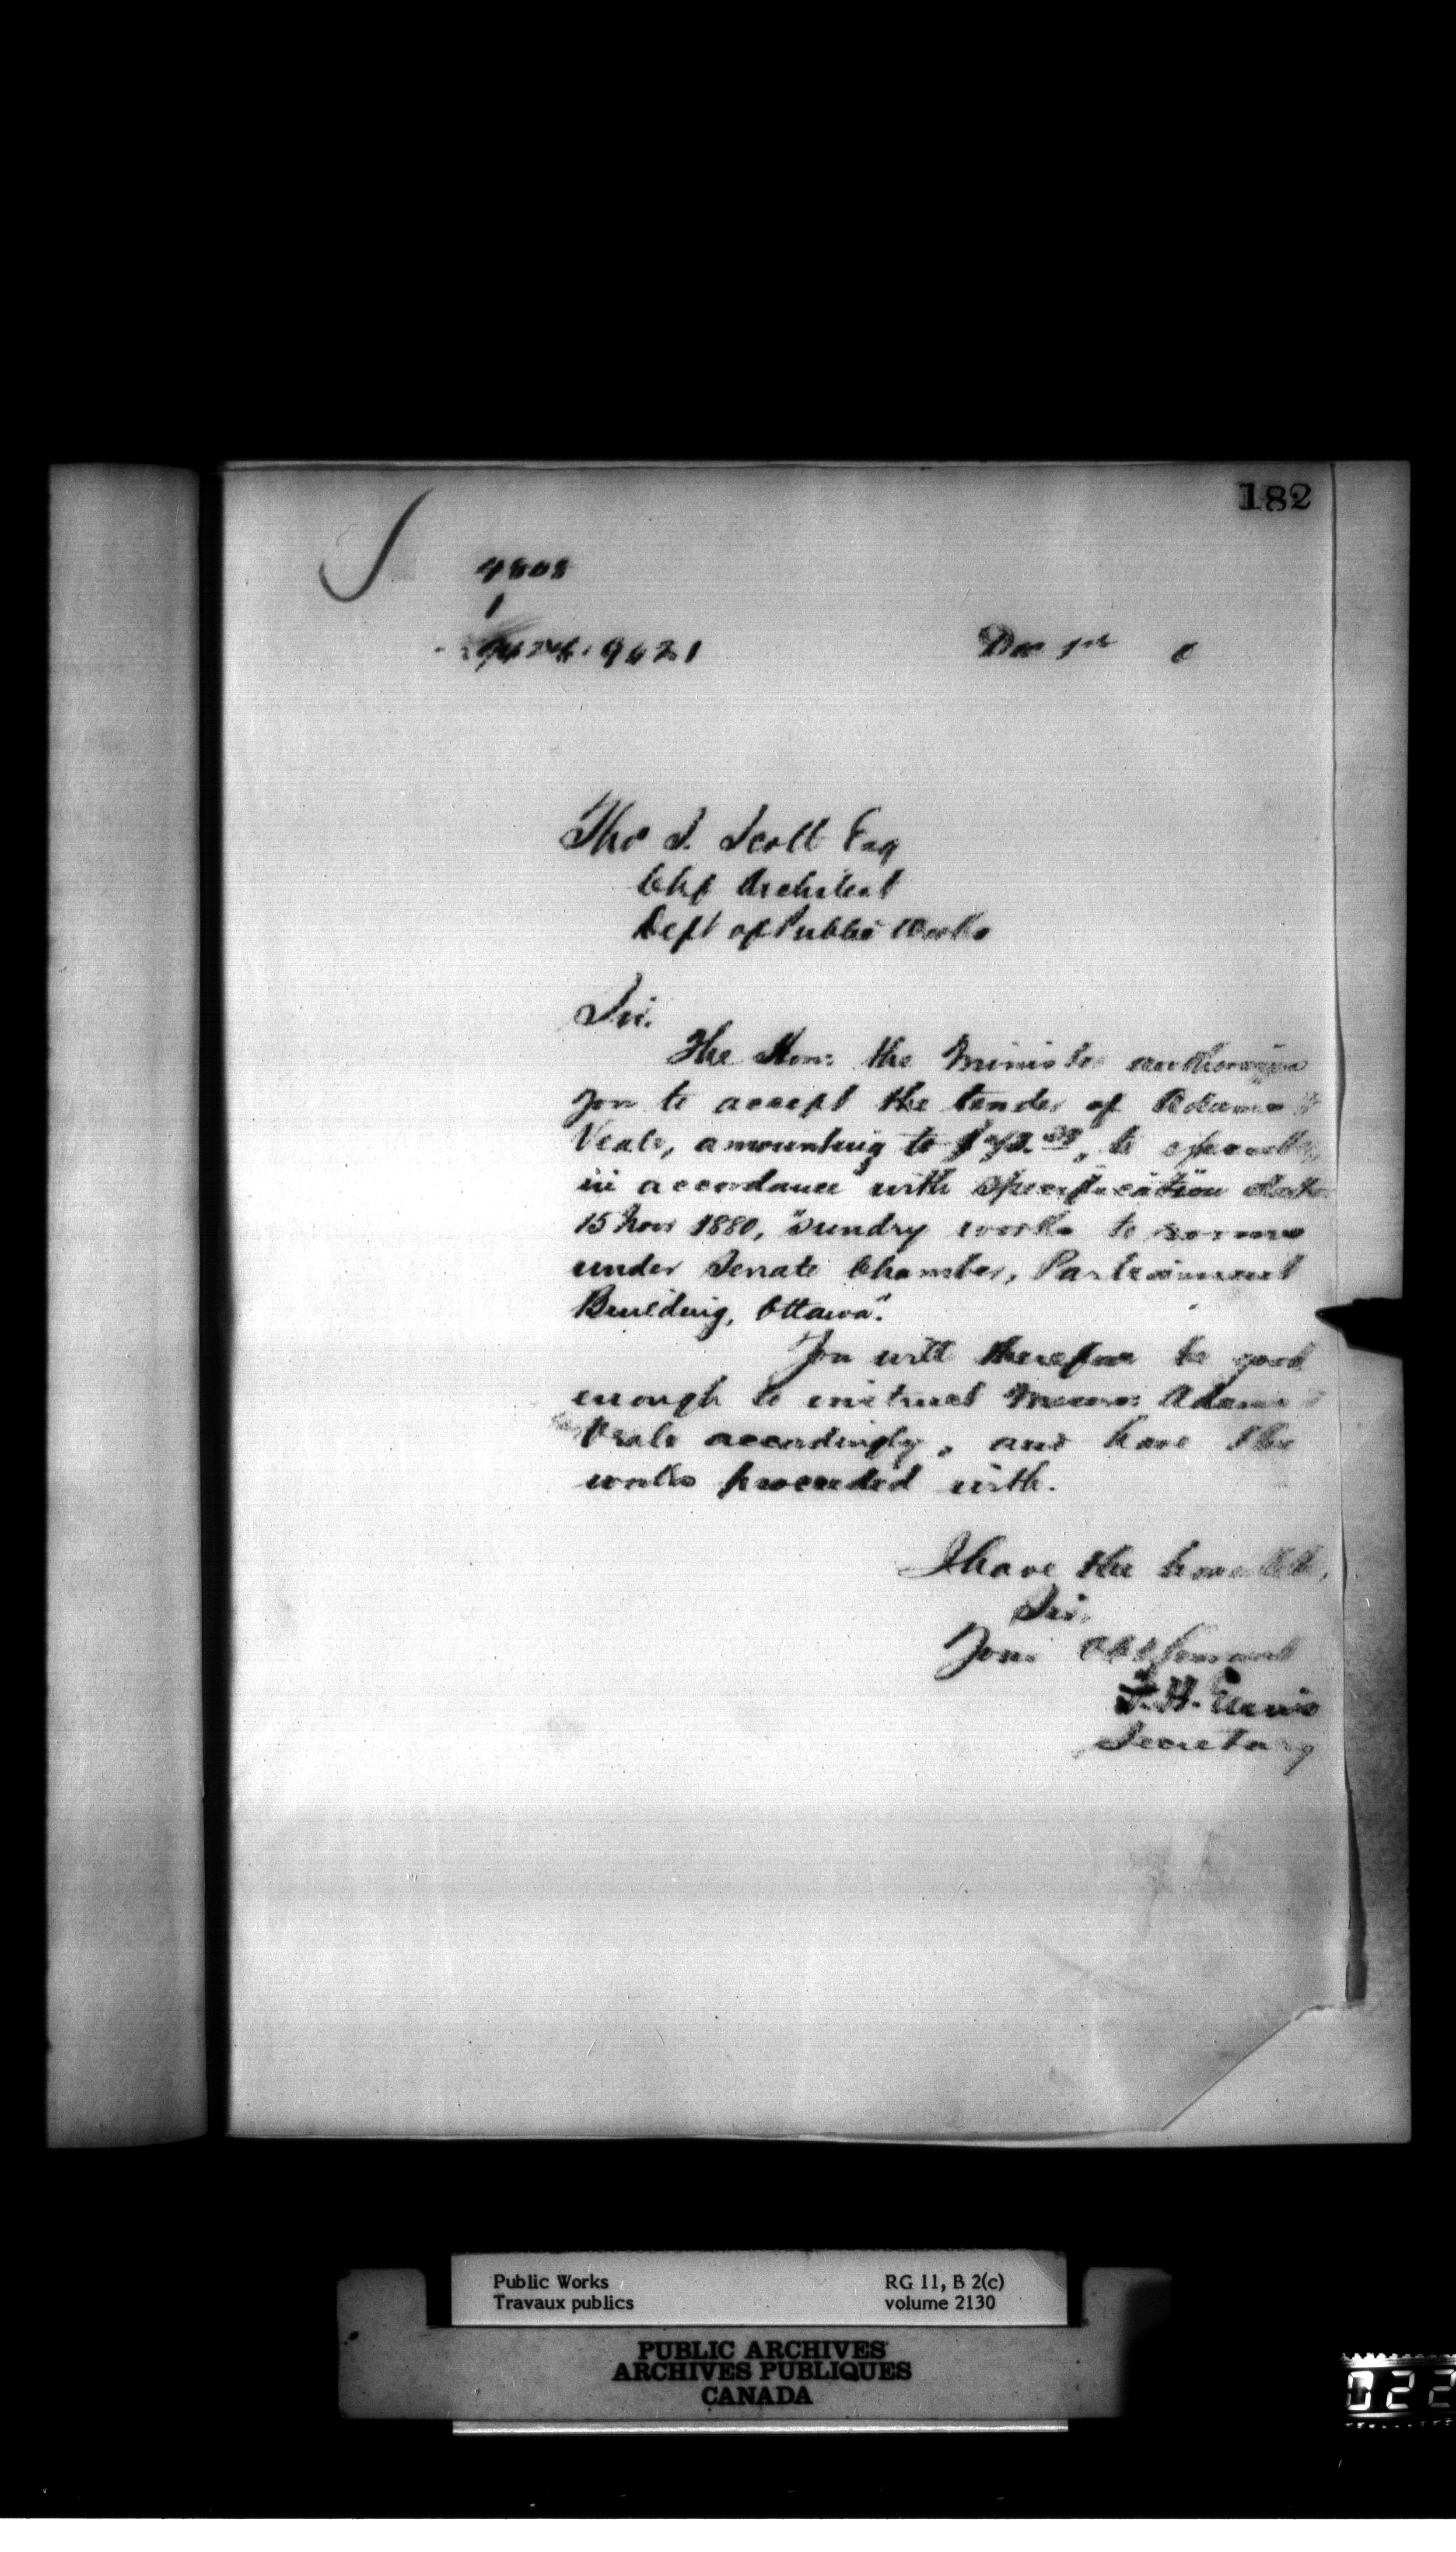 182
4808
1
9621 Dec 1st 0
Thos S. Scott Esq
Chf Architect
Dept of Public Works
Sir.
The Hon: the Minister authorizes
you to accept the tender of Adams &
Veale, amounting to to
in accordance with Specification date
15 Nov 1880, "Sundry works to rooms
under Senate Chamber, Parliament
Building, Ottawa".
You will therefore be good
enough to instruct Messrs: Adams &
Veale accordingly, and have the
works proceeded with.
I have the honor
Sir.
Your Obt Servant
F.H. Ennis
Secretary
Public Works
Travaux publics
RG 11, B 2(c)
volume 2130
PUBLIC ARCHIVES
ARCHIVES PUBLIQUES
CANADA
022